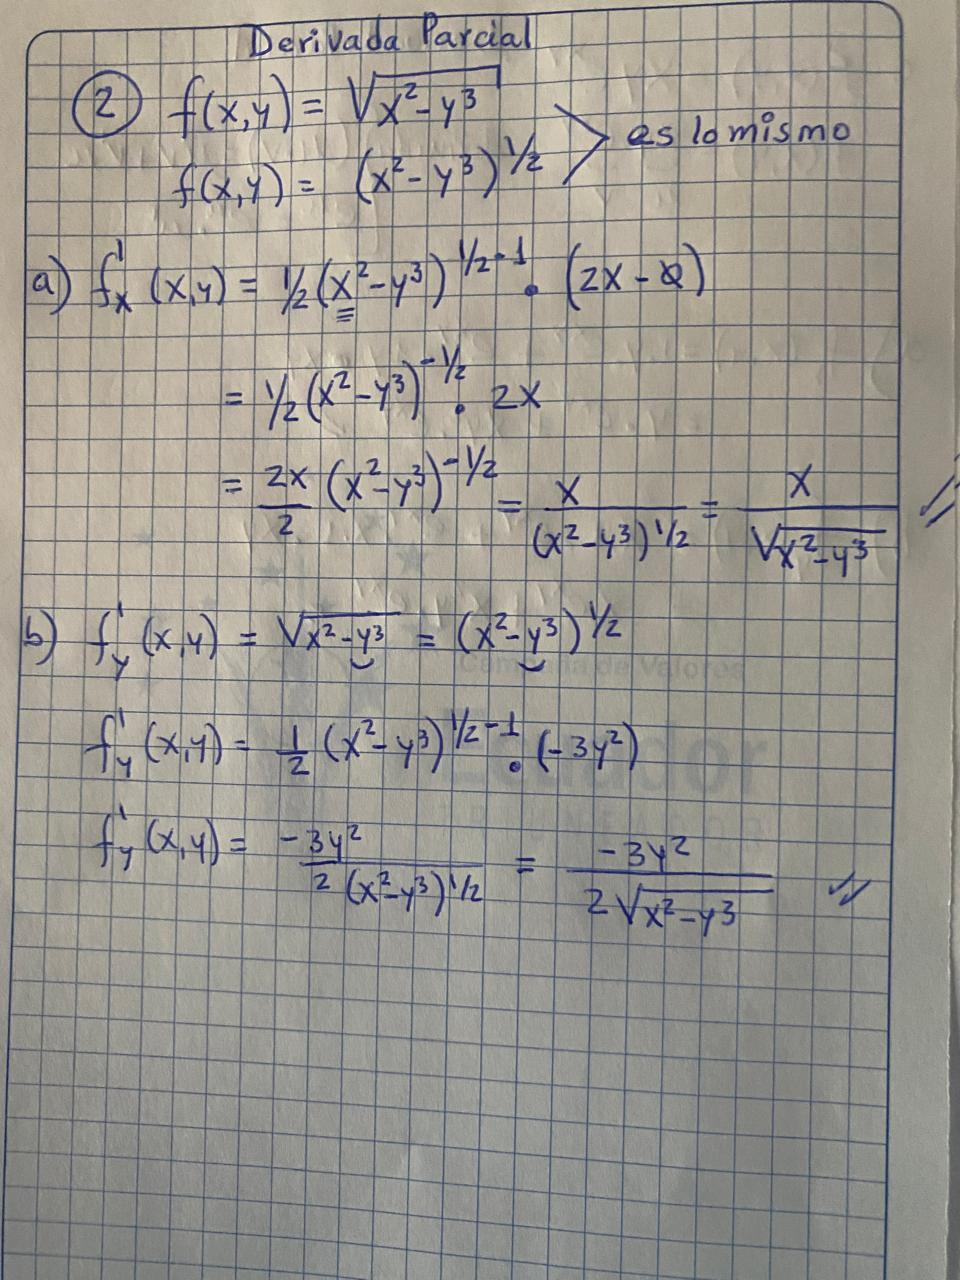 Derivada Parcial
② f(x,y) = √(x²-y³)
f(x,y) = (x²-y³)^1/2 > es lo mismo
a) f'x (x,y) = 1/2 (x²-y³)^1/2-1 • (2x-0)
= 1/2 (x²-y³)^-1/2 • 2x
= 2x/2 (x²-y³)^-1/2 = x/(x²-y³)^1/2 = x/√(x²-y³)
b) f'y (x,y) = √(x²-y³) = (x²-y³)^1/2
Campaña de Valores
f'y (x,y) = 1/2 (x²-y³)^1/2-1 • (-3y²)
Ecuador
f'y (x,y) = -3y²/2(x²-y³)^1/2 = -3y²/2√(x²-y³)